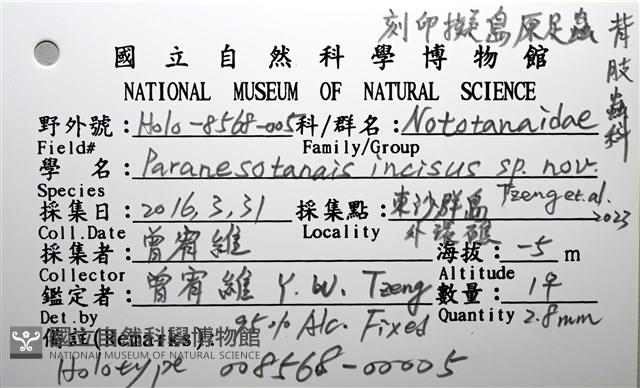 刻印擬島原足蟲
背肢蟲科
國立自然科學博物館
NATIONAL MUSEUM OF NATURAL SCIENCE
野外號：Holo-8568-005 科/群名：Nototanaidae
Field# Family/Group
學 名：Paranesotanais incisus sp. nov.
Species Tzeng et. al. 2023
採集日：2016,3,31 採集點：東沙群島
Coll.Date Locality 外環礁
採集者：曾宥維 海拔：-5 m
Collector Altitude
鑑定者：曾宥維 Y. W. Tzeng 數量：1♀
Det.by Quantity 2.8mm
備註(Remarks)： 95% Alc. Fixed
國立自然科學博物館
NATIONAL MUSEUM OF NATURAL SCIENCE
Holotype 008568-00005